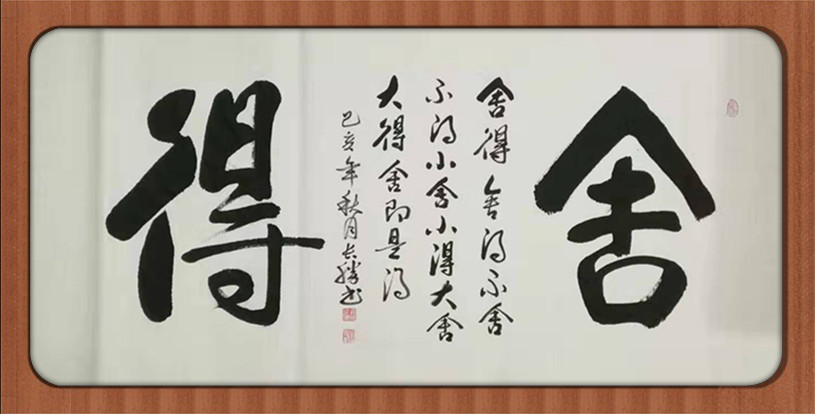 舍
舍得舍得不舍
不得小舍小得大舍
大得舍即是得
己亥年秋月书
得